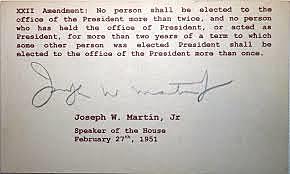 XXII Amendment: No person shall be elected to the
office of the President more than twice, and no person
who has held the office of President, or acted as
President, for more than two years of a term to which
some other person was elected President shall be
elected to the office of the President more than once.
Joseph W. Martin, Jr
Joseph W. Martin, Jr
Speaker of the House
February 27th, 1951